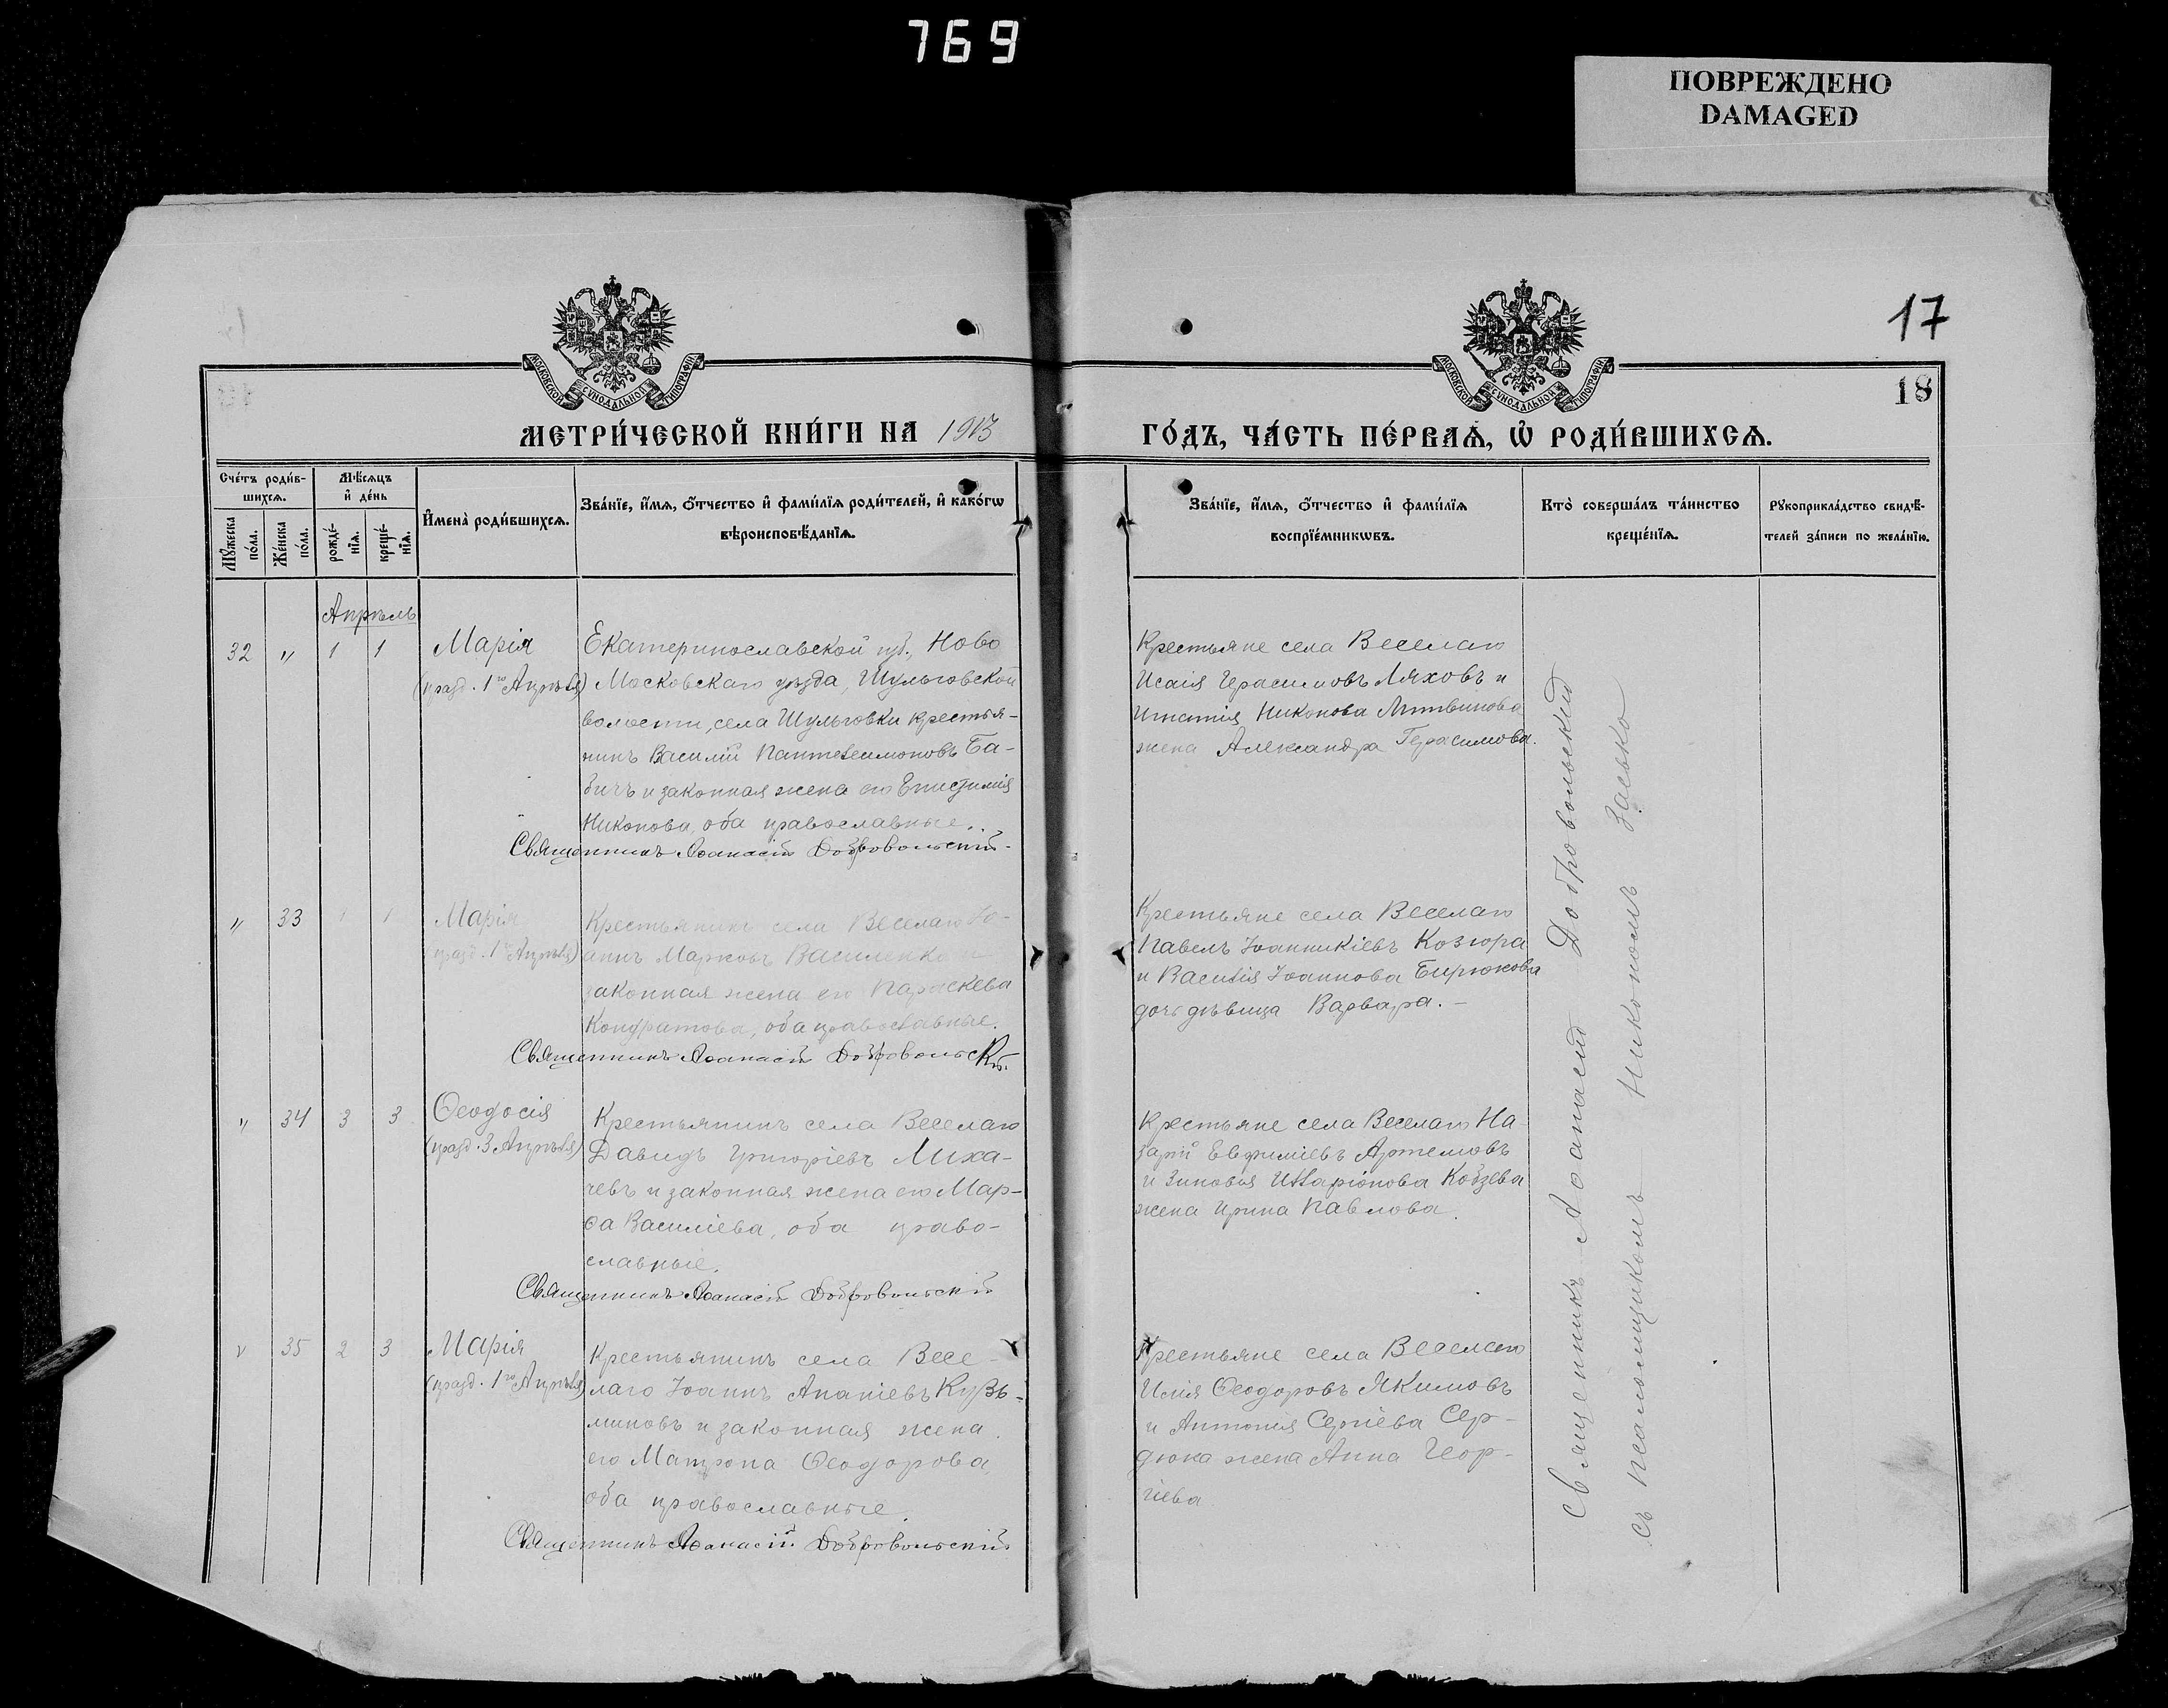 769
ПОВРЕЖДЕНО
DAMAGED
17
18
МОСКОВСКОЙ СѴНОДАЛЬНОЙ ТИПОГРАФІИ
МОСКОВСКОЙ СѴНОДАЛЬНОЙ ТИПОГРАФІИ
МЕТРИ́ЧЕСКОЙ КНИ́ГИ НА 1913
ГО́ДЪ, ЧА́СТЬ ПЕ́РВАѦ, Ѡ҆ РОДИ́ВШИХСѦ.
Сче́тъ роди́в-
шихсѧ.
Мꙋ́жеска
по́ла.
Же́нска
по́ла.
Мѣ́сѧцъ
и҆ де́нь
рожде́-
нїѧ.
креще́-
нїѧ.
И҆мена̀ роди́вшихсѧ.
Зва́нїе, и҆́мѧ, ѻ҆́тчество и҆ фами́лїѧ роди́телей, и҆ како́гѡ
вѣроисповѣ́данїѧ.
Зва́нїе, и҆́мѧ, ѻ҆́тчество и҆ фами́лїѧ
воспрїе́мникѡвъ.
Кто̀ соверша́лъ та́инство
креще́нїѧ.
Рꙋкоприкла́дство свидѣ́-
телей за́писи по жела́нїю.
Апрѣль
32 " 1 1
Марія
(празд. 1го Апрѣля)
Екатеринославской губ., Ново
Московскаго уѣзда, Шульговской
волости, села Шульговки крестья-
нинъ Василій Пантелеимоновъ Ба-
бичъ и законная жена его Епистимія
Никонова, оба православные.
Священникъ Аѳанасій Добровольскій
Крестьяне села Веселаго
Исаія Герасимовъ Ляховъ и
Игнатія Никонова Литвинова
жена Александра Герасимова.
" 33 1 1
Марія
(празд. 1го Апрѣля)
Крестьянинъ села Веселаго Іо-
аннъ Марковъ Василенко и
законная жена его Параскева
Кондратова, оба православные.
Священникъ Аѳанасій Добровольскій.
Крестьяне села Веселаго
Павелъ Іоанникіевъ Козюра
и Василія Іоаннова Бирюкова
дочь дѣвица Варвара.
" 34 3 3
Ѳеодосія
(празд. 3 Апрѣля)
Крестьянинъ села Веселаго
Давидъ Григоріевъ Лиха-
чевъ и законная жена его Мар-
ѳа Василіева, оба право-
славные.
Священникъ Аѳанасій Добровольскій
Крестьяне села Веселаго На-
зарій Евфиміевъ Артемовъ
и Зиновія Илларіонова Кобзева
жена Ирина Павлова.
" 35 2 3
Марія
(празд. 1го Апрѣля)
Крестьянинъ села Весе-
лаго Іоаннъ Ананіевъ Кузь-
миновъ и законная жена
его Матрона Ѳеодорова,
оба православные.
Священникъ Аѳанасій Добровольскій
Крестьяне села Веселаго
Илія Ѳеодоровъ Якимовъ
и Антонія Сергіева Сер-
дюка жена Анна Геор-
гіева
Священникъ Аѳанасій Добровольскій
съ псаломщикомъ Никономъ Засько